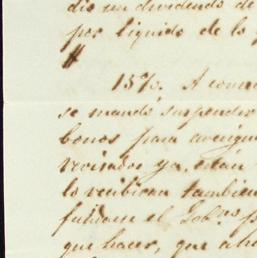 dio un dividendo de
por liquido de lo
#
15%. A
se mandó suspender
bonos para
revisados ya, estan
lo recibieran tambien
el Gob.no
que hacer, que a